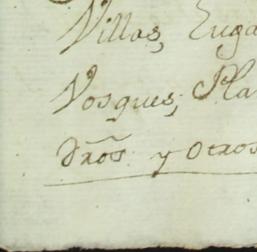 Villas, Luga
Vosques, Pla
dr̃os y otros